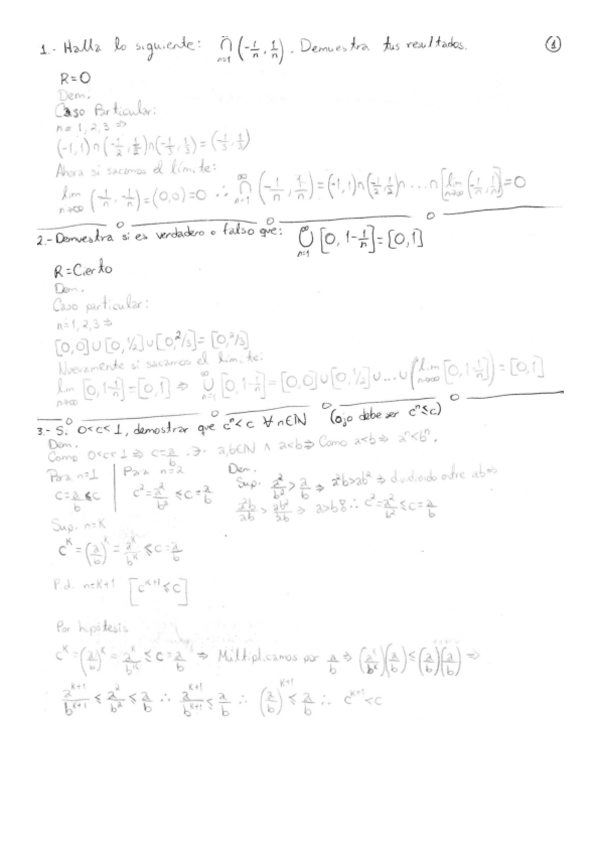 1.- Halla lo siguiente: ∞∩n=1 (-1/n, 1/n). Demuestra tus resultados. ①
R=0
Dem.
Caso Particular:
n=1,2,3 ⇒
(-1,1)∩(-1/2,1/2)∩(-1/3,1/3)=(-1/3,1/3)
Ahora si sacamos el límite:
lim n→∞ (-1/n,-1/n)=(0,0)=0 ∴ ∞∩n=1 (-1/n,1/n)=(-1,1)∩(-1/2,1/2)∩...∩[lim n→∞ (-1/n,1/n)]=0
2.- Demuestra si es verdadero o falso que: ∞∪n=1 [0,1-1/n]=[0,1]
R=Cierto
Dem.
Caso particular:
n=1,2,3 ⇒
[0,0]∪[0,1/2]∪[0,2/3]=[0,2/3]
Nuevamente si sacamos el límite:
lim n→∞ [0,1-1/n]=[0,1] ⇒ ∞∪n=1 [0,1-1/n]=[0,0]∪[0,1/2]∪...∪(lim n→∞ [0,1-1/n])=[0,1]
3.- Si 0<c<1, demostrar que cⁿ<c ∀n∈ℕ (ojo debe ser cⁿ≤c)
Dem.
Como 0<c<1 ⇒ c=a/b .∋. a,b∈ℕ ∧ a<b ⇒ Como a<b ⇒ aⁿ<bⁿ.
Para n=1 | Para n=2 Dem.
c=a/b≤c | c²=a²/b²≤c=a/b Sup. a²/b²>a/b ⇒ a²b>ab² ⇒ dividiendo entre ab ⇒
a²b/ab>ab²/ab ⇒ a>b ∴ c²=a²/b²≤c=a/b
Sup. n=K
c^K=(a/b)^K=a^K/b^K≤c=a/b
P.d. n=K+1 [c^(K+1)≤c]
Por hipótesis
c^K=(a/b)^K=a^K/b^K≤c=a/b ⇒ Multiplicamos por a/b ⇒ (a^K/b^K)(a/b)≤(a/b)(a/b) ⇒
a^(K+1)/b^(K+1)≤a²/b²≤a/b ∴ a^(K+1)/b^(K+1)≤a/b ∴ (a/b)^(K+1)≤a/b ∴ c^(K+1)<c